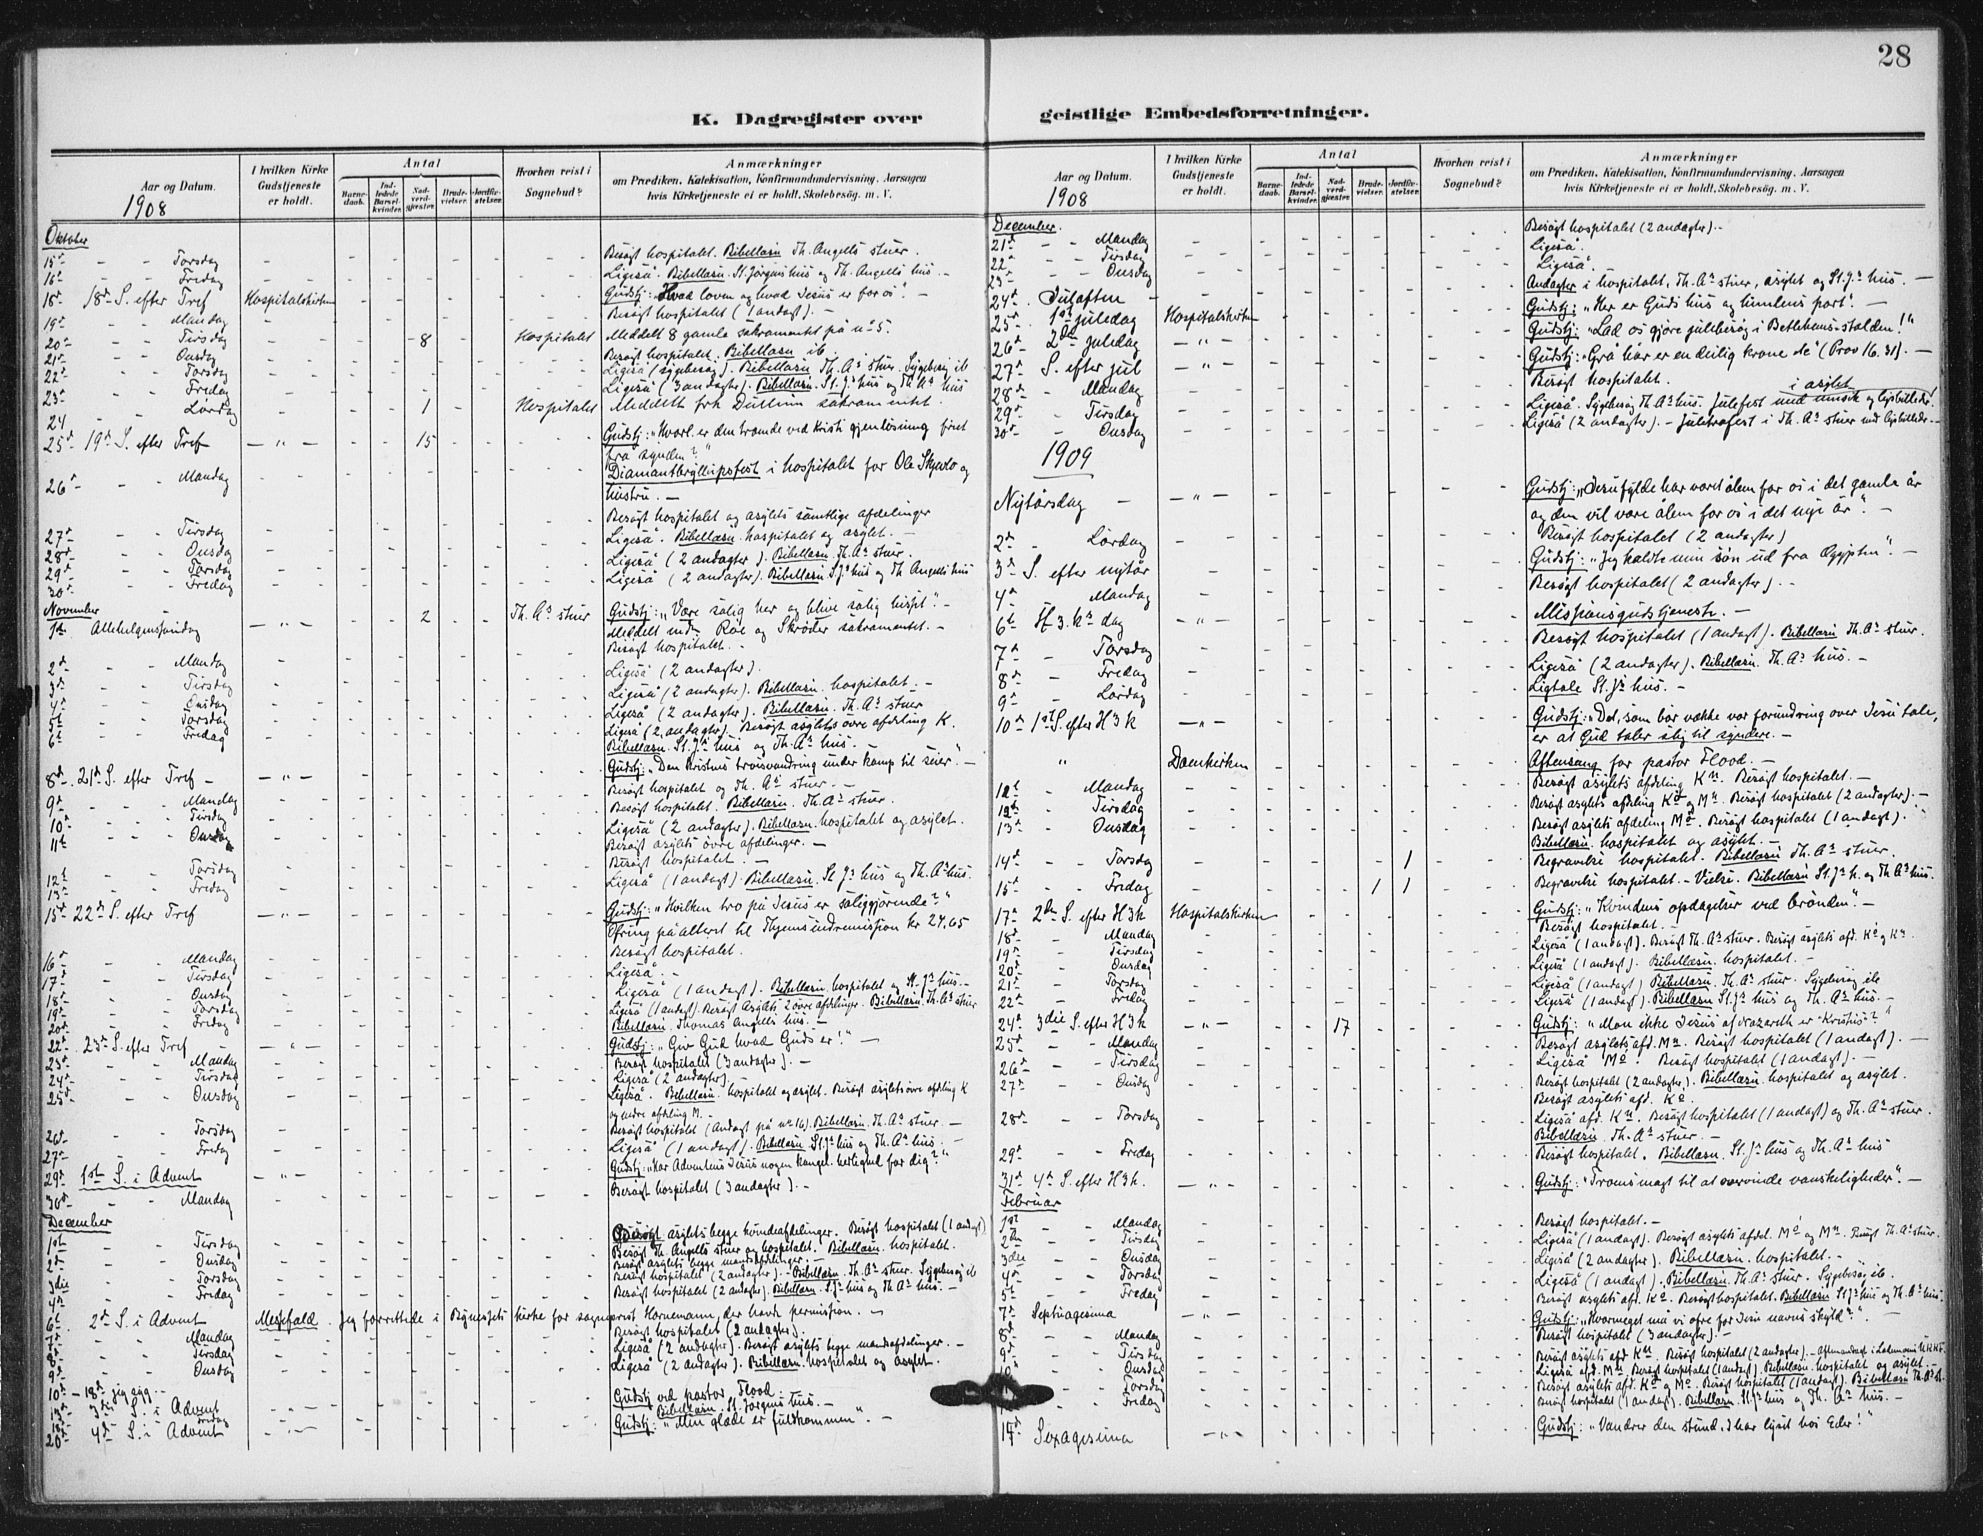 28
K. Dagregister over geistlige Embedsforretninger.
Aar og Datum.
1908
I hvilken Kirke Gudstjeneste er holdt.
Antal
Barne-daab.
Ind-ledede Barsel-kvinder.
Nad-verd-gjester.
Brude-vielser.
Jordfæ-stelser.
Hvorhen reist i Sognebud?
Anmærkninger
om Prædiken, Katekisation, Konfirmandundervisning, Aarsagen
hvis Kirketjeneste ei er holdt, Skolebesög m. V.
Oktober
15d - - Torsdag Besögt hospitalet. Bibellæsn. Th. Angells stuer.
16d - - Fredag Ligeså. Bibellæsn. St. Jörgens hus og Th. Angells hus. -
18d 18d S. efter Tref Hospitalskirken Gudstj: "Hvad loven og hvad Jesus er for os". -
19d - - Mandag Besögt hospitalet (1 andagt). -
20d - - Tirsdag 8 Hospitalet Meddelt 8 gamle sakramentet på no 5.
21d - - Onsdag Besögt hospitalet. Bibellæsn. ib.
22d - - Torsdag Ligeså (sygebesög). Bibellæsn. Th. As stuer. Sygebesög ib
23d - - Fredag Ligeså (3 andagter). Bibellæsn. St. Js hus og Th. As hus
24 - - Lørdag 1 Hospitalet Meddelt frk sakramentet.
25d 19d S. efter Tref - " - 15 Gudstj: "Hvorl. er den troende ved Kristi gjenlösning friet
fra synden?"
26d - - Mandag Diamantbryllupsfest i hospitalet for Ole og
hustru. -
Besögt hospitalet og asylets samtlige afdelinger
27d - - Tirsdag Ligeså. Bibellæsn. hospitalet og asylet. -
28d - - Onsdag Ligeså (2 andagter). Bibellæsn. Th. As stuer.
29d - - Torsdag Ligeså (2 andagter). Bibellæsn. St. Js hus og Th. Angells hus
30d - - Fredag
November
1ste Allehelgenssöndag - " - 2 Th. As stuer Gudstj: "Være salig her og blive salig hisset". -
Meddelt Roe og Skrøder sakramentet. -
Besögt hospitalet. -
2d - - Mandag Ligeså (2 andagter).
3d - - Tirsdag Ligeså (2 andagter). Bibellæsn. hospitalet. -
4d - - Onsdag Ligeså (2 andagter). Bibellæsn. Th. As stuer
5te - - Torsdag Ligeså (2 andagter). Besögt asylets övre afdeling K.
6te - - Fredag Bibellæsn. St. Js hus og Th. As hus. -
8d. 21d S. efter Tref - - " - Gudstj: "Den kristnes trosvandring under kamp til seier". -
9d - - Mandag Besögt hospitalet og Th. As stuer. -
10d - - Tirsdag Besögt hospitalet. Bibellæsn. Th. As stuer.
11te - - Onsdag Ligeså (2 andagter). Bibellæsn. hospitalet og asylet.
Besögt asylets övre afdelinger. -
12te - - Torsdag Besögt hospitalet. -
13d - - Fredag Ligeså (1 andagt). Bibellæsn. St. Js hus og Th. As hus.
15d 22d S. efter Tref - " - Gudstj: "Hvilken tro på Jesus er saliggjørende?"
Ofring på alteret til Hjemsindremission kr 24,65
16d - - Mandag Besögt hospitalet.
17d - - Tirsdag Ligeså. -
18d - - Onsdag Ligeså (1 andagt). Bibellæsn. hospitalet og St. Js hus. -
19d - - Torsdag Ligeså (1 andagt). Besögt Asylets 2 övre afdelinger. Bibellæsn. Th. As stuer
20d - - Fredag Bibellæsn. Thomas Angells hus. -
22d 23d S. efter Tref - " - Gudstj: "Giv Gud hvad Guds er!" -
23d - - Mandag Besögt hospitalet (3 andagter). -
24d - - Tirsdag Ligeså (2 andagter). -
25d - - Onsdag Ligeså. Bibellæsn. hospitalet og asylet. Besögt asylets övre afdeling K
og nedre afdeling M. -
26d - - Torsdag Besögt hospitalet (Andagt på no 16). Bibellæsn. Th. As stuer. -
27d - - Fredag Ligeså (1 andagt). Bibellæsn. St. Js hus og Th. As hus. -
29d 1ste S. i Advent - " - Gudstj: "Har Adventens Jesus nogen herlighed for dig?"
30d - - Mandag Besögt hospitalet (3 andagter). -
December
1ste - - Tirsdag Besögt asylets begge kvindeafdelinger. Besögt hospitalet (1 andagt)
2d - - Onsdag Besögt Th. Angells stuer og hospitalet. Bibellæsn. hospitalet.
Besögt asylets begge mandsafdelinger.
3die - - Torsdag Besögt hospitalet (2 andagter). - Bibellæsn. Th. As stuer. Sygebesög ib
4d - - Fredag Besögt hospitalet (2 andagter). Bibellæsn. St. Js hus og Th. As hus. -
6te 2d S. i Advent Messefald. Jeg forrettede i Bynessets kirke for sogneprest Hornemann, der havde permission. -
7d - - Mandag Besögt hospitalet (2 andagter).
8d - - Tirsdag Ligeså (2 andagter). Besögt asylets begge mandsafdelinger. -
9d - - Onsdag Ligeså (2 andagter). Bibellæsn. hospitalet og asylet.
10d - 18d jeg syg. -
13d - 3d S. i Advent Gudstj ved pastor Flood
Fredag Bibellæsn. St. Jörgens hus. -
20d 4d S. i Advent - " - Gudstj: "Min glæde er fuldkommen". -
Aar og Datum.
1908
I hvilken Kirke Gudstjeneste er holdt.
Antal
Barne-daab.
Ind-ledede Barsel-kvinder.
Nad-verd-gjester.
Brude-vielser.
Jordfæ-stelser.
Hvorhen reist i Sognebud?
Anmærkninger
om Prædiken, Katekisation, Konfirmandundervisning, Aarsagen
hvis Kirketjeneste ei er holdt, Skolebesög m. V.
December.
21d - - Mandag Besögt hospitalet (2 andagter). -
22 - - Tirsdag Ligeså.
23d - - Onsdag Ligeså.
24d. Juleaften - Andagter i hospitalet, Th. As stuer, asylet og St. Js hus. -
25d. 1ste juledag Hospitalskirken Gudstj: "Her er Guds hus og himlens port". -
26d 2den juledag - " - Gudstj: "Lad os gjøre julebesög i Betlehems-stalden!"
27d S. efter jul - " - Gudstj: "Grå hår er en deilig krone etc" (Prov 16. 31). -
28d - Mandag Besögt hospitalet.
29d - Tirsdag Ligeså. Sygebesög Th. As hus. Julefest i asylet med musik og lysbilleder!
30d - Onsdag Ligeså (2 andagter). - Juletræfest i Th. As stuer med lysbilleder. -
1909
Nytårsdag - - " - Gudstj: "Jesu fylde har været åben for os i det gamle år
og den vil være åben for os i det nye år". -
2d - Lørdag Besögt hospitalet (2 andagter)
3d S. efter nytår - Gudstj: "Jeg kaldte min sön ud fra Ægypten". -
4d - Mandag Besögt hospitalet (2 andagter). -
6te H. 3. ks dag - " - Missionsgudstjeneste. -
7d - Torsdag Besögt hospitalet (1 andagt). Bibellæsn Th. As stuer.
8d - Fredag Ligeså (2 andagter). Bibellæsn. Th. As hus. -
9d - Lørdag Ligtale St. Js hus. -
10d 1ste S. efter H 3 k - " - Gudstj: "Det, som bør vække vor forundring over Jesu tale,
er at Gud taler slig til syndere. -
" Domkirken Aftensang for pastor Flood. -
11te - Mandag Besögt asylets afdeling Kn. Besögt hospitalet. -
12te - Tirsdag Besögt asylets afdeling Kö og Mn. Besögt hospitalet (2 andagter). -
13d - Onsdag Besögt asylets afdeling Mö. Besögt hospitalet (1 andagt). "
Bibellæsn. hospitalet og asylet. -
14d - - Torsdag 1 Begravelse hospitalet. Bibellæsn Th. As stuer.
15d - - Fredag 1 1 Begravelse hospitalet. - Vielse. Bibellæsn St. Js h. og Th. As hus.
17d 2den S. efter H3k Hospitalskirken Gudstj: "Kvindens opdagelser ved brönden". -
18d - Mandag Besögt hospitalet. -
19d - Tirsdag Ligeså (1 andagt). Besögt Th. As stuer. Besögt asylets afd. Kö og Kn.
20d - Onsdag Ligeså (1 andagt). Bibellæsn. hospitalet. -
21d - Torsdag Ligeså (1 andagt) Bibellæsn. Th. As stuer. Sygebesög ib
22d - Fredag Ligeså (1 andagt). Bibellæsn St. Js hus og Th. As hus. -
24d 3die S. efter H3k - " - 17 Gudstj: "Mon ikke Jesus af Nazareth er "Kristus"?"
25d - Mandag Besögt asylets afd. Mn. Besögt hospitalet (1 andagt). -
26d - Tirsdag Ligeså Mö Besögt hospitalet (1 andagt). -
27d - Onsdag Besögt hospitalet (2 andagter). Bibellæsn. hospitalet og asylet.
Besögt asylets afd. Kö.
28d - - Torsdag Ligeså afd. Kn. Besögt hospitalet (1 andagt) og Th. As stuer.
Bibellæsn. Th. As stuer. -
29d - Fredag Besögt hospitalet. Bibellæsn. St. Js hus og Th. As hus
31d 4d S. efter H3k. - " - Gudstj: "Troens magt til at overvinde vanskeligheder". -
Februar
1ste - Mandag Besögt hospitalet. -
2den - Tirsdag Ligeså (1 andagt). Besögt asylets afdel. Mö og Mn. Besögt Th. As stuer.
3die - Onsdag Ligeså (2 andagter). Bibellæsn. hospitalet. -
4d - Torsdag Ligeså (1 andagt). Bibellæsn. Th. As stuer. Sygebesög ib.
5te - Fredag Besögt asylets afd. Kö. Besögt hospitalet. Bibellæsn St. Js hus og Th. As hus.
7d Septuagesima - " - Gudstj: "Hvormeget må vi ofre for Jesu navns skyld?". -
8d - Mandag Besögt hospitalet (3 andagter). -
9d - Tirsdag Besögt asylets afd. Kn. Besögt hospitalet (2 andagter). -
- Onsdag Ligeså afd. Mn. Besögt hospitalet (1 andagt). Bibellæsn. hospitalet og asylet. -
- Torsdag Besögt asylets afd. Kö og Mö. Besögt hospitalet (1 andagt). Bibellæsn Th. As st.
- Fredag Besögt hospitalet (1 andagt). Bibellæsn. St. Js hus og Th. As hus. -
14d Sexagesima - " - Gudstj: "Vandrer den stund, I har lyset hos Eder!"